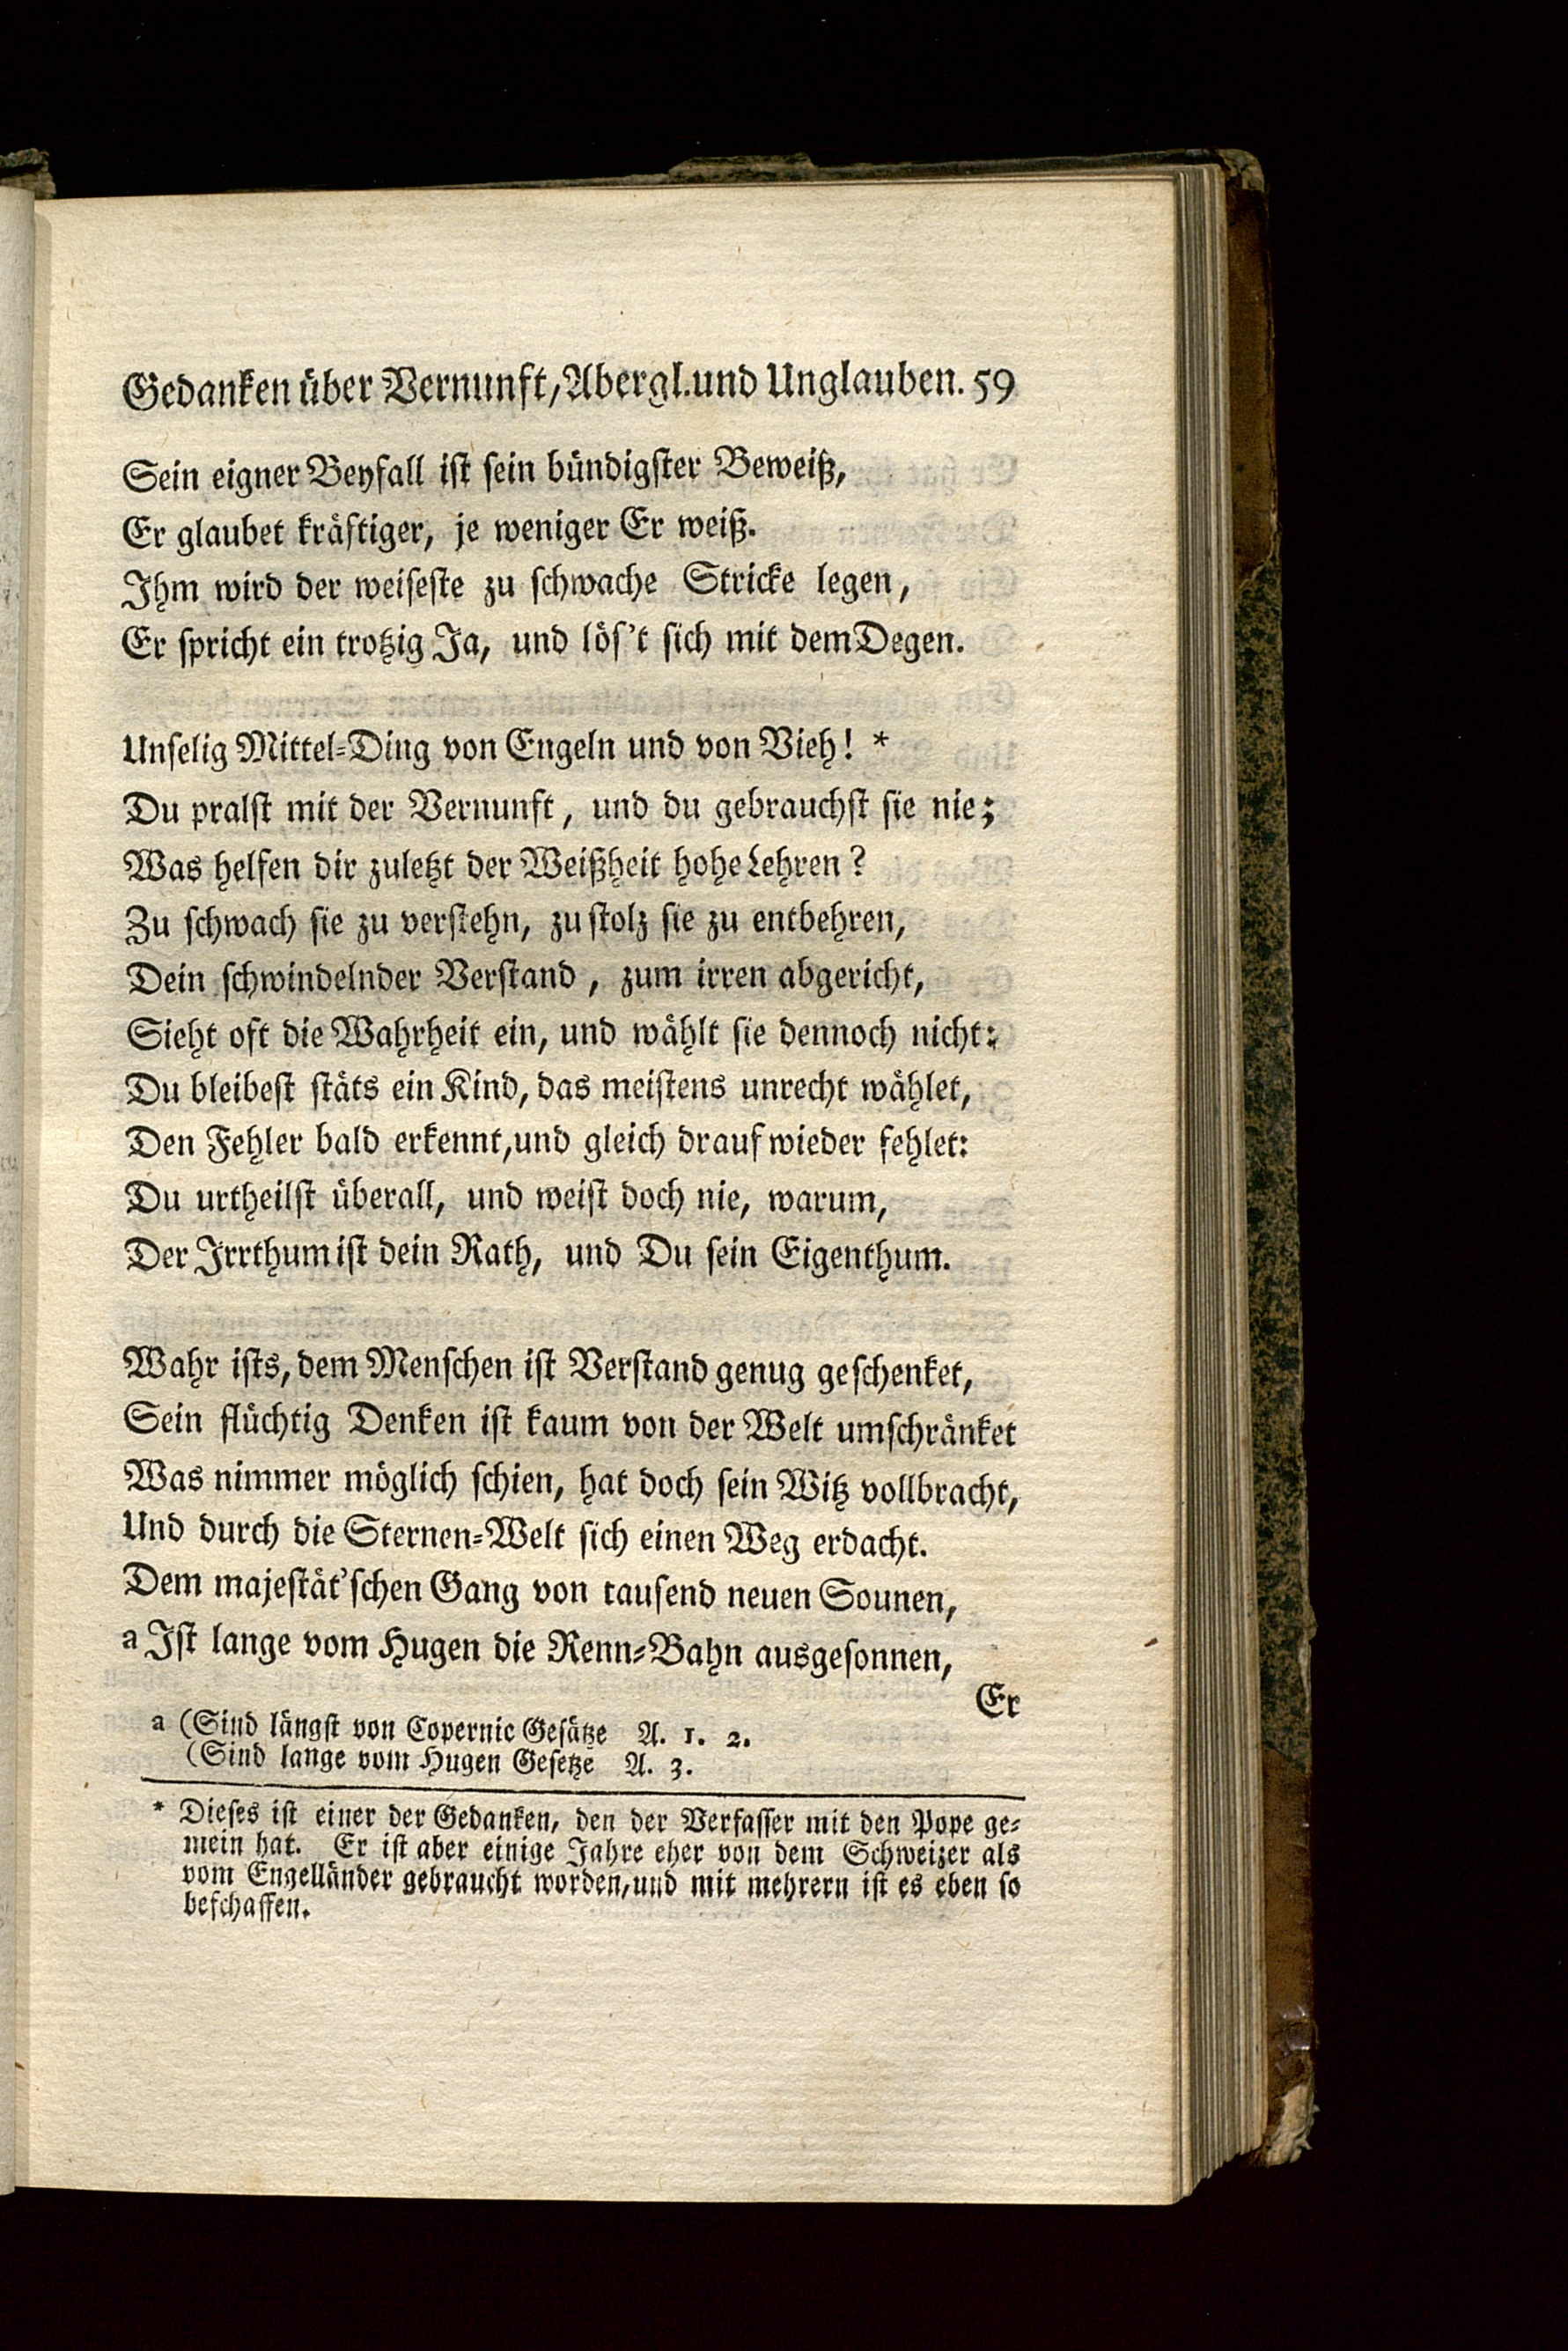 Gedanken über Vernunft, Abergl. und Unglauben. 59
Sein eigner Beyfall ist sein bündigster Beweiß,
Er glaubet kräftiger, je weniger Er weiß.
Ihm wird der weiseste zu schwache Stricke legen,
Er spricht ein trotzig Ja, und lös't sich mit dem Degen.
Unselig Mittel-Ding von Engeln und von Vieh! *
Du pralst mit der Vernunft, und du gebrauchst sie nie;
Was helfen dir zuletzt der Weißheit hohe Lehren?
Zu schwach sie zu verstehn, zu stolz sie zu entbehren,
Dein schwindelnder Verstand, zum irren abgericht,
Sieht oft die Wahrheit ein, und wählt sie dennoch nicht:
Du bleibest stäts ein Kind, das meistens unrecht wählet,
Den Fehler bald erkennt, und gleich drauf wieder fehlet:
Du urtheilst überall, und weist doch nie, warum,
Der Irrthum ist dein Rath, und Du sein Eigenthum.
Wahr ists, dem Menschen ist Verstand genug geschenket,
Sein flüchtig Denken ist kaum von der Welt umschränket
Was nimmer möglich schien, hat doch sein Witz vollbracht,
Und durch die Sternen-Welt sich einen Weg erdacht.
Dem majestät'schen Gang von tausend neuen Sounen,
a Ist lange vom Hugen die Renn-Bahn ausgesonnen,
Er
a (Sind längst von Copernic Gesätze A. 1. 2.
(Sind lange vom Hugen Gesetze A. 3.
* Dieses ist einer der Gedanken, den der Verfasser mit den Pope ge-
mein hat. Er ist aber einige Jahre eher von dem Schweizer als
vom Engelländer gebraucht worden, und mit mehrern ist es eben so
beschaffen.